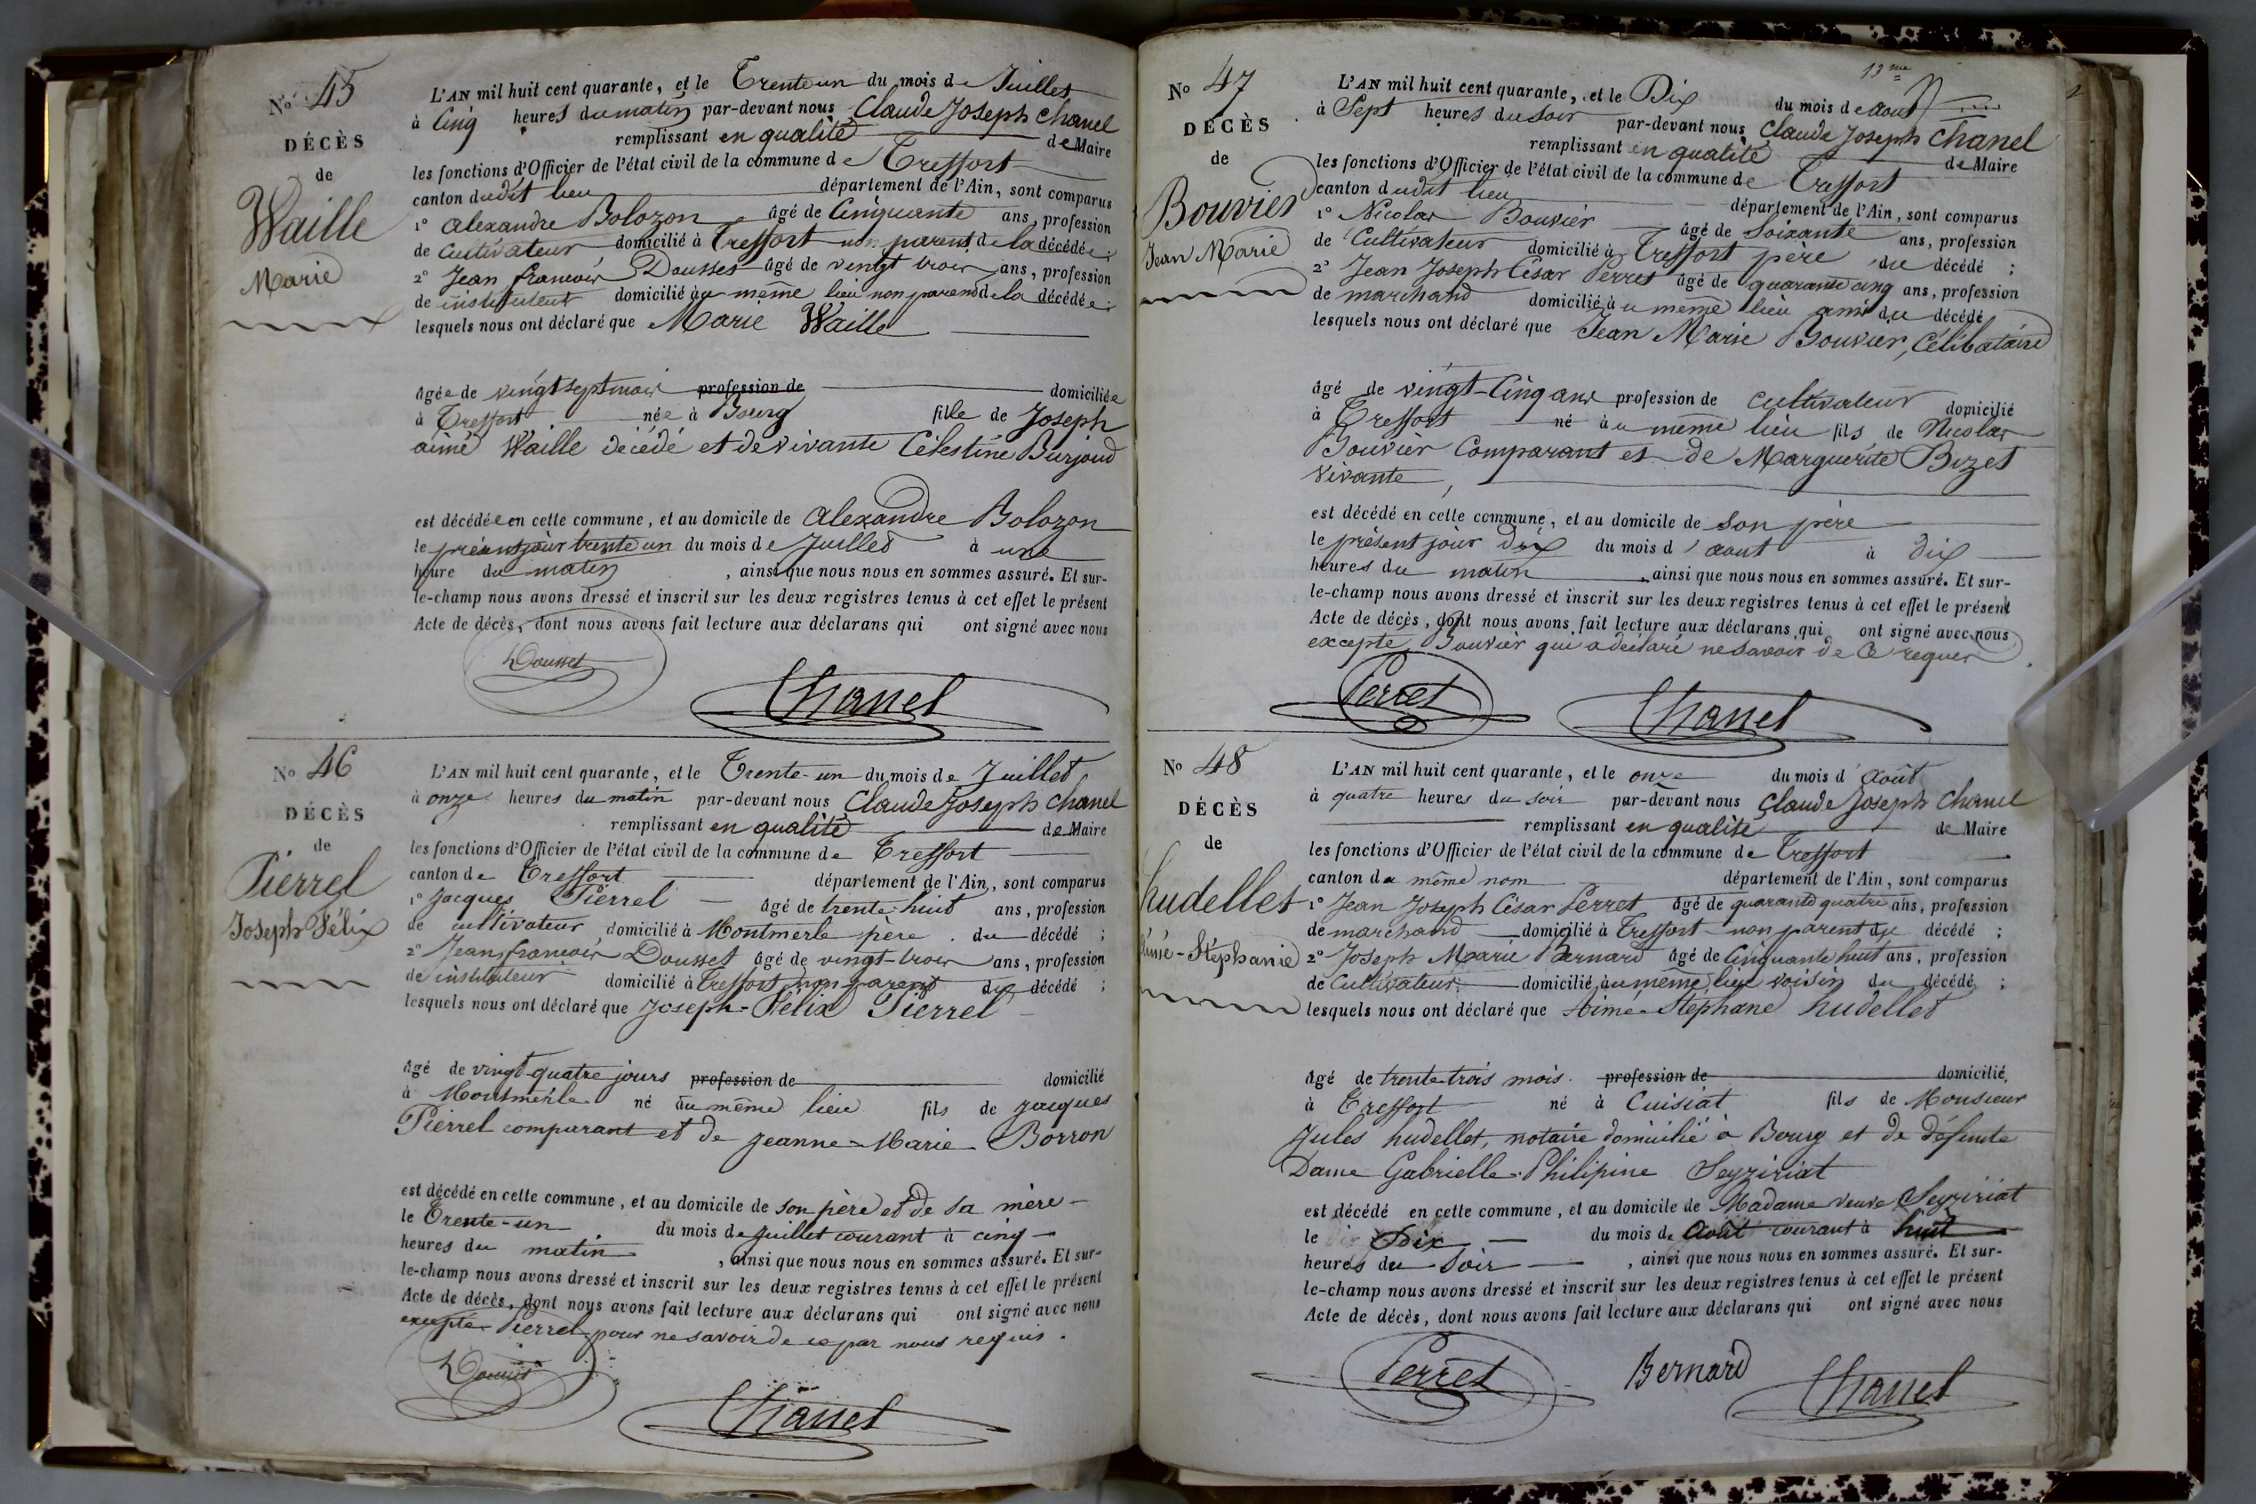 N° 45
DÉCÈS
de
Waille
Marie
L'AN mil huit cent quarante, et le Trente un du mois de Juillet
à Cinq heures du matin par-devant nous Claude Joseph Chanel
remplissant en qualité de Maire
les fonctions d'Officier de l'état civil de la commune de Treffort
canton dudit lieu département de l'Ain, sont comparus
1° Alexandre Bolozon âgé de Cinquante ans, profession
de Cultivateur domicilié à Treffort non parent de la décédée;
2° Jean françois Dousset âgé de vingt trois ans, profession
de instituteur domicilié au même lieu non parend de la décédée;
lesquels nous ont déclaré que Marie Waille
âgée de vingt sept mois profession de domiciliée
à Treffort née à Bourg fille de Joseph
aimé Waille décédé et de vivante Célestine Burjoud
est décédée en cette commune, et au domicile de Alexandre Bolozon
le présent jour trente un du mois de Juillet à une
heure du matin, ainsi que nous nous en sommes assuré. Et sur-
le-champ nous avons dressé et inscrit sur les deux registres tenus à cet effet le présent
Acte de décès, dont nous avons fait lecture aux déclarans qui ont signé avec nous
Dousset
Chanel
N° 46
DÉCÈS
de
Pierrel
Joseph Félix
L'AN mil huit cent quarante, et le Trente-un du mois de Juillet
à onze heures du matin par-devant nous Claude Joseph Chanel
remplissant en qualité de Maire
les fonctions d'Officier de l'état civil de la commune de Treffort
canton de Treffort département de l'Ain, sont comparus
1° Jacques Pierrel âgé de trente-huit ans, profession
de cultivateur domicilié à Montmerle père du décédé;
2° Jean françois Dousset âgé de vingt-trois ans, profession
de instituteur domicilié à Treffort non parent du décédé;
lesquels nous ont déclaré que Joseph-Félix Pierrel
âgé de vingt-quatre jours profession de domicilié
à Montmerle né au même lieu fils de Jacques
Pierrel comparant et de Jeanne-Marie Borron
est décédé en cette commune, et au domicile de son père et de sa mère
le Trente-un du mois de juillet courant à cinq
heures du matin, ainsi que nous nous en sommes assuré. Et sur-
le-champ nous avons dressé et inscrit sur les deux registres tenus à cet effet le présent
Acte de décès, dont nous avons fait lecture aux déclarans qui ont signé avec nous
excepté Pierrel pour ne savoir de ce par nous requis.
Dousset
Chanel
13me
N° 47
DÉCÈS
de
Bouvier
Jean Marie
L'AN mil huit cent quarante, et le Dix du mois de aout
à Sept heures du soir par-devant nous Claude Joseph Chanel
remplissant en qualité de Maire
les fonctions d'Officier de l'état civil de la commune de Treffort
canton dudit lieu département de l'Ain, sont comparus
1° Nicolas Bouvier âgé de Soixante ans, profession
de Cultivateur domicilié à Treffort père du décédé;
2° Jean Joseph César Perret âgé de quarante cinq ans, profession
de marchand domicilié au même lieu ami du décédé
lesquels nous ont déclaré que Jean Marie Bouvier, Célibataire
âgé de vingt-Cinq ans profession de cultivateur domicilié
à Treffort né au même lieu fils de Nicolas
Bouvier Comparant et de Marguerite Bizet
vivante,
est décédé en cette commune, et au domicile de son père
le présent jour dix du mois d'aout à dix
heures du matin, ainsi que nous nous en sommes assuré. Et sur-
le-champ nous avons dressé et inscrit sur les deux registres tenus à cet effet le présent
Acte de décès, dont nous avons fait lecture aux déclarans qui ont signé avec nous
excepté Bouvier qui a déclaré ne savoir de ce requer
Perret
Chanel
N° 48
DÉCÈS
de
hudellet
Aimé-Stéphanie
L'AN mil huit cent quarante, et le onze du mois d'août
à quatre heures du soir par-devant nous Claude Joseph Chanel
remplissant en qualité de Maire
les fonctions d'Officier de l'état civil de la commune de Treffort
canton du même nom département de l'Ain, sont comparus
1° Jean Joseph César Perret âgé de quarante quatre ans, profession
de marchand domicilié à Treffort non parent du décédé;
2° Joseph Marie Bernard âgé de Cinquante huit ans, profession
de Cultivateur domicilié au même lieu voisin du décédé;
lesquels nous ont déclaré que Aimé-Stéphane hudellet
âgé de trente-trois mois. profession de domicilié,
à Treffort né à Cuisiat fils de Monsieur
Jules hudellet, notaire domicilié à Bourg et de défunte
Dame Gabrielle-Philipine Seyziriat
est décédé en cette commune, et au domicile de Madame veuve Seyziriat
le Dix du mois de Août courant à huit
heures du Soir, ainsi que nous nous en sommes assuré. Et sur-
le-champ nous avons dressé et inscrit sur les deux registres tenus à cet effet le présent
Acte de décès, dont nous avons fait lecture aux déclarans qui ont signé avec nous
Perret
Bernard
Chanel